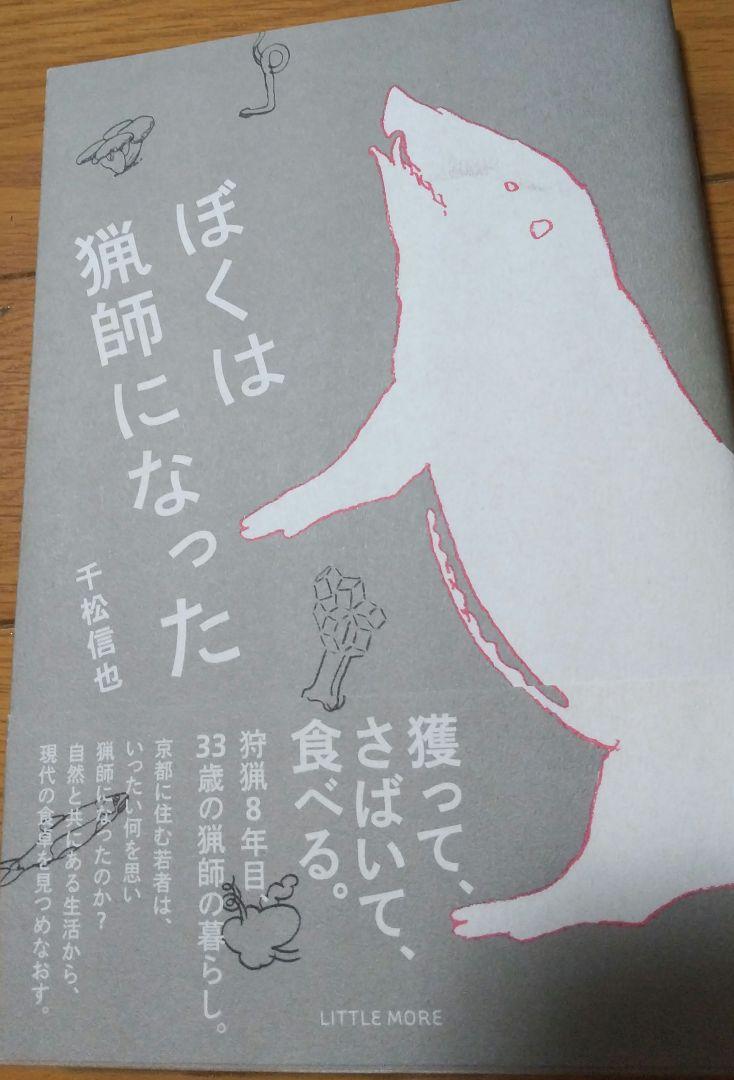 ぼくは
猟師になった
千松信也
獲って、
さばいて、
食べる。
狩猟8年目
33歳の猟師の暮らし。
京都に住む若者は、
いったい何を思い
猟師になったのか?
自然と共にある生活から、
現代の食卓を見つめなおす。
LITTLE MORE